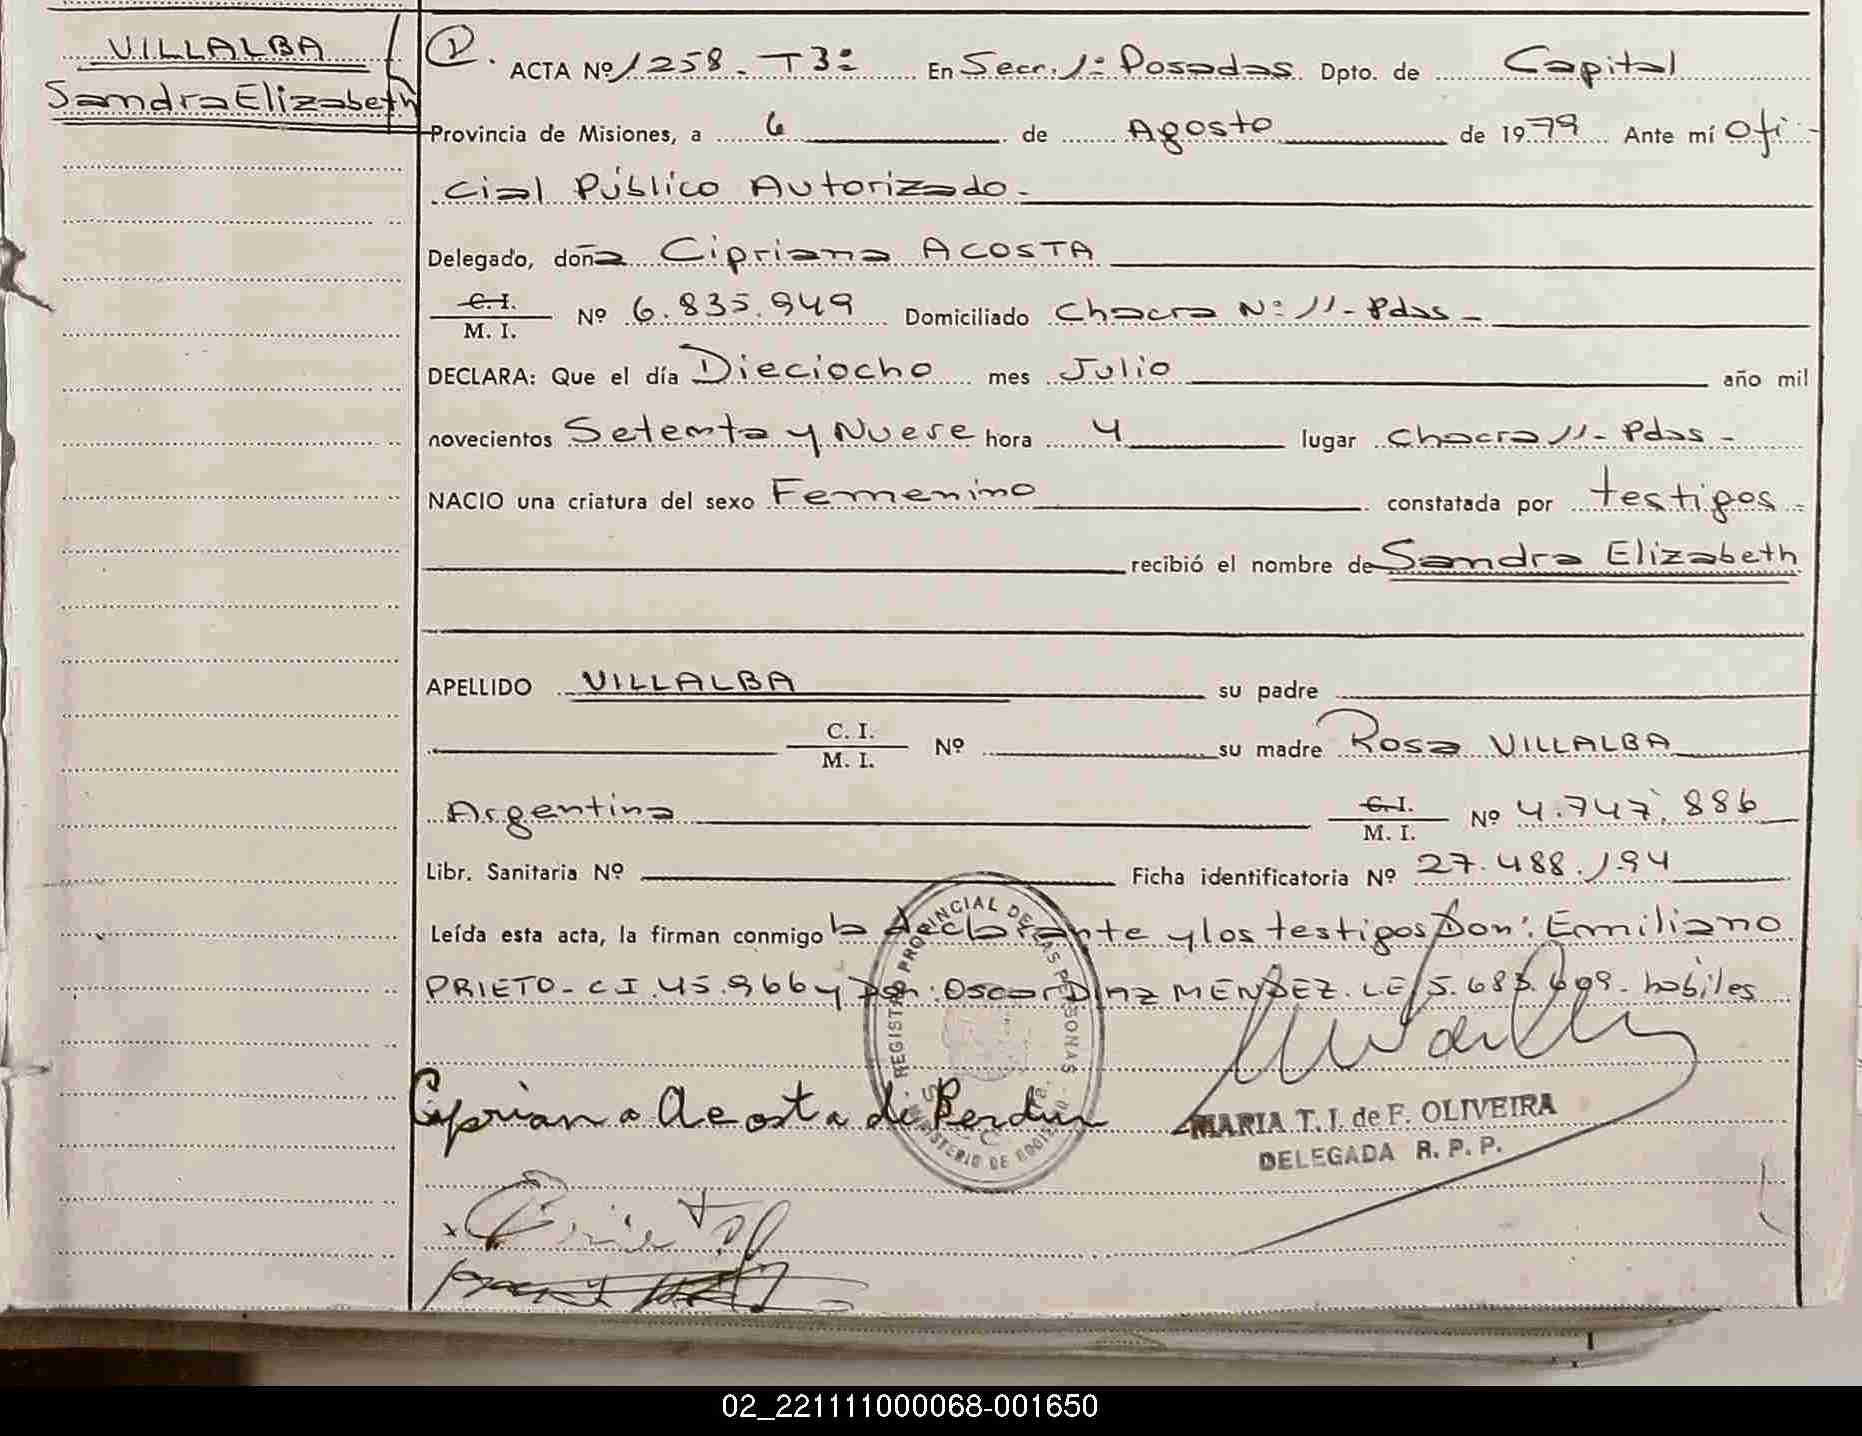 VILLALBA
Sandra Elizabeth
1. ACTA Nº 1258. T3º En Secr. 1º Posadas Dpto. de Capital
Provincia de Misiones, a 6 de Agosto de 1979 Ante mí Ofi-
cial Público Autorizado-
Delegado, doña Cipriana ACOSTA
C. I.
M. I. Nº 6.835.949 Domiciliado Chacra Nº 11- Pdas-
DECLARA: Que el día Dieciocho mes Julio año mil
novecientos Setenta y Nueve hora 4 lugar Chacra 11- Pdas-
NACIO una criatura del sexo Femenino constatada por testigos-
recibió el nombre de Sandra Elizabeth
APELLIDO VILLALBA su padre
C. I.
M. I. Nº su madre Rosa VILLALBA
Argentina C. I.
M. I. Nº 4.747.886
Libr. Sanitaria Nº Ficha identificatoria Nº 27.488.194
Leída esta acta, la firman conmigo la declarante y los testigos Don: Emiliano
PRIETO- CI.45.966 y Don: Oscar DIAZ MENDEZ. LE 5.683.609- hábiles
REGISTRO PROVINCIAL DE LAS PERSONAS
MINISTERIO DE GOBIERNO
Cipriana Acosta de
MARIA T. I. de F. OLIVEIRA
DELEGADA R. P. P.
02_221111000068-001650